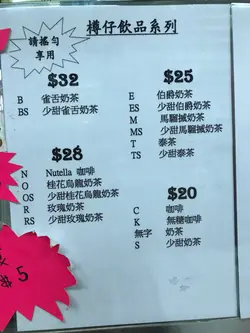 樽仔飲品系列
請搖勻
享用
$32
B 雀舌奶茶
BS 少甜雀舌奶茶
$28
N Nutella 咖啡
O 桂花烏龍奶茶
OS 少甜桂花烏龍奶茶
R 玫瑰奶茶
RS 少甜玫瑰奶茶
$25
E 伯爵奶茶
ES 少甜伯爵奶茶
M 馬騮搣奶茶
MS 少甜馬騮搣奶茶
T 泰茶
TS 少甜泰茶
$20
C 咖啡
K 無糖咖啡
無字 奶茶
S 少甜奶茶
5